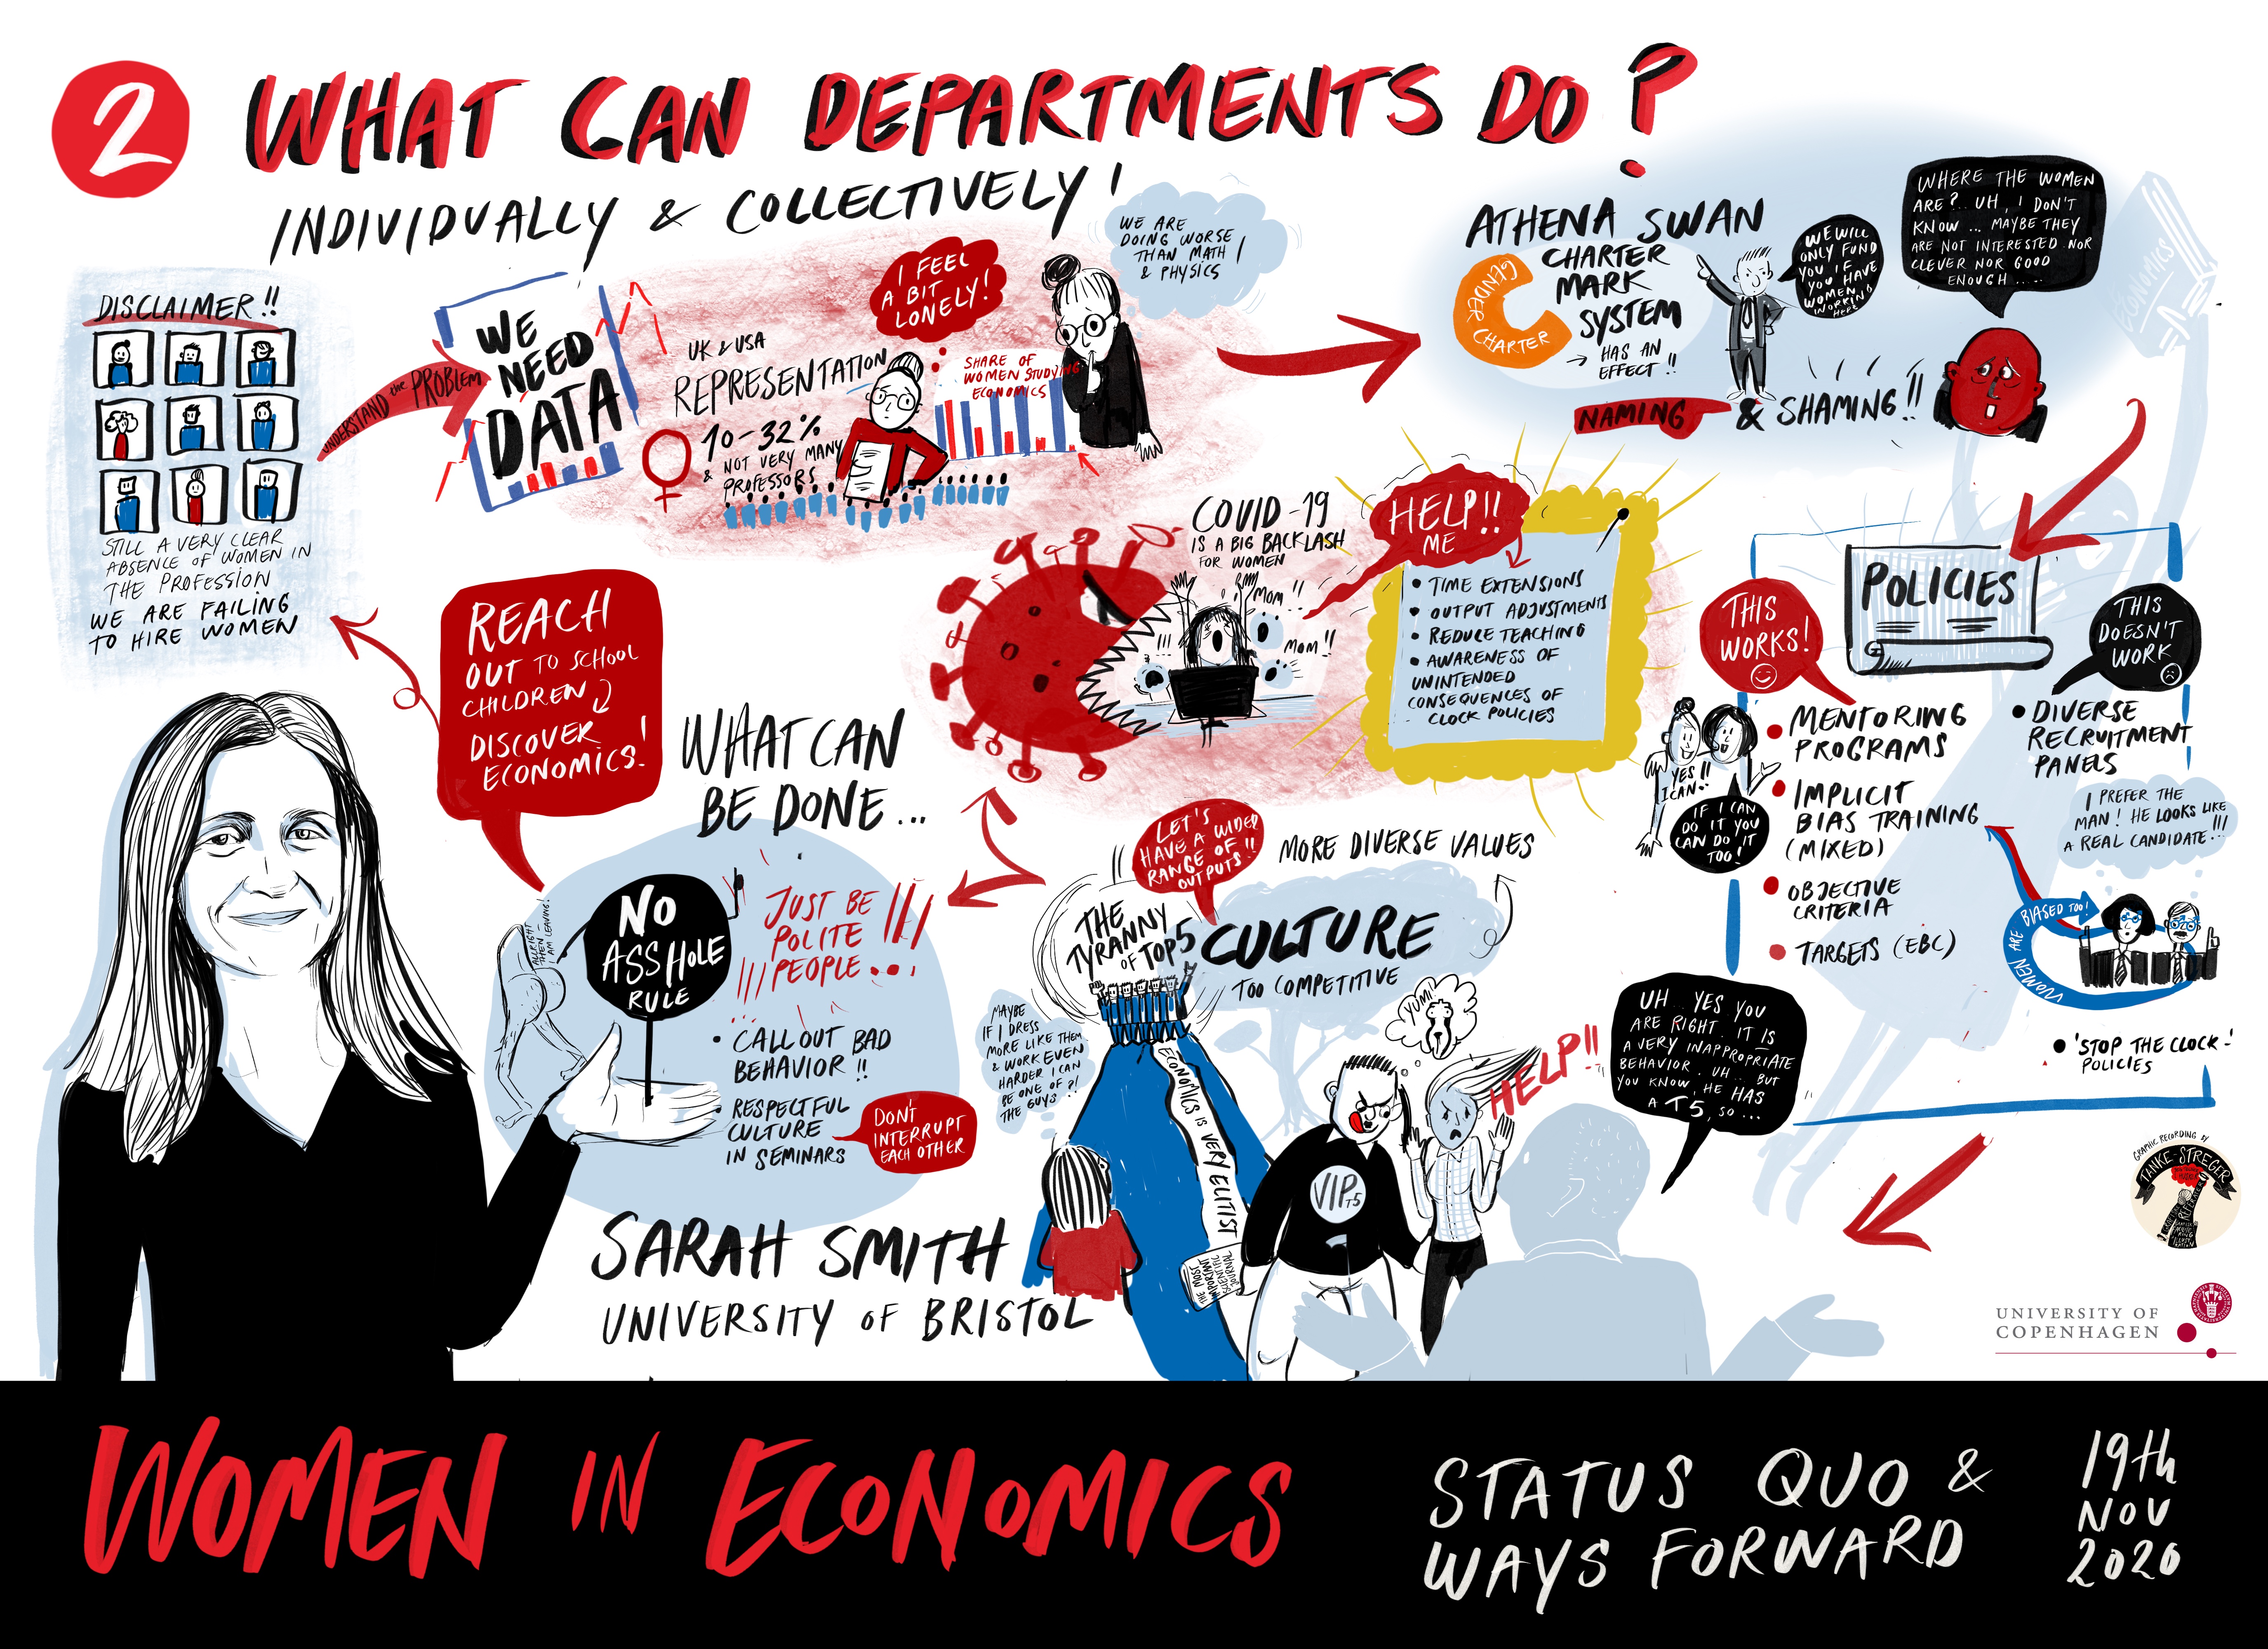 2
WHAT CAN DEPARTMENTS DO?
INDIVIDUALLY & COLLECTIVELY!
DISCLAIMER!!
STILL A VERY CLEAR
ABSENCE OF WOMEN IN
THE PROFESSION
WE ARE FAILING
TO HIRE WOMEN
UNDERSTAND the PROBLEM
WE
NEED
DATA
UK & USA
REPRESENTATION
10-32%
& NOT VERY MANY
PROFESSORS
I FEEL
A BIT
LONELY!
SHARE OF
WOMEN STUDYING
ECONOMICS
WE ARE
DOING WORSE
THAN MATH!
& PHYSICS
ATHENA SWAN
CHARTER
MARK
SYSTEM
→ HAS AN
EFFECT!!
GENDER CHARTER
WE WILL
ONLY FUND
YOU IF
YOU HAVE
WOMEN
WORKING
HERE
NAMING & SHAMING!!
WHERE THE WOMEN
ARE? UH, I DON'T
KNOW ... MAYBE THEY
ARE NOT INTERESTED NOR
CLEVER NOR GOOD
ENOUGH .....
ECONOMICS
COVID-19
IS A BIG BACKLASH
FOR WOMEN
MOM!!
!!!
MOM!!
HELP!!
ME
• TIME EXTENSIONS
• OUTPUT ADJUSTMENTS
• REDUCE TEACHING
• AWARENESS OF
UNINTENDED
CONSEQUENCES OF
CLOCK POLICIES
POLICIES
THIS
WORKS!
• MENTORING
PROGRAMS
• IMPLICIT
BIAS TRAINING
(MIXED)
• OBJECTIVE
CRITERIA
• TARGETS (EBC)
YES!!
I CAN..
IF I CAN
DO IT YOU
CAN DO IT
TOO!
THIS
DOESN'T
WORK
• DIVERSE
RECRUITMENT
PANELS
I PREFER THE
MAN! HE LOOKS LIKE
A REAL CANDIDATE..!!!
WOMEN ARE BIASED TOO!
• 'STOP THE CLOCK-'
POLICIES
REACH
OUT TO SCHOOL
CHILDREN
DISCOVER
ECONOMICS!
WHAT CAN
BE DONE...
NO
ASSHOLE
RULE
ALLRIGHT
THEN -
I AM LEAVING!
JUST BE
POLITE
PEOPLE...!
• CALL OUT BAD
BEHAVIOR!!
• RESPECTFUL
CULTURE
IN SEMINARS
DON'T
INTERRUPT
EACH OTHER
SARAH SMITH
UNIVERSITY OF BRISTOL
LET'S
HAVE A WIDER
RANGE OF!!
OUTPUTS!!
MORE DIVERSE VALUES
THE
TYRANNY
OF TOP 5
CULTURE
TOO COMPETITIVE
MAYBE
IF I DRESS
MORE LIKE THEM
& WORK EVEN
HARDER I CAN
BE ONE OF ?!
THE GUYS
ECONOMICS IS VERY ELITIST
THE MOST
IMPORTANT
SCIENTIFIC
JOURNAL
YUM!
VIP T5
HELP!!
UH... YES YOU
ARE RIGHT. IT IS
A VERY INAPPROPRIATE
BEHAVIOR. UH... BUT
YOU KNOW, HE HAS
A T5, SO...
GRAPHIC RECORDING BY
TANKE-STREGER
UNIVERSITY OF
COPENHAGEN
WOMEN IN ECONOMICS
STATUS QUO &
WAYS FORWARD
19th
NOV
2020